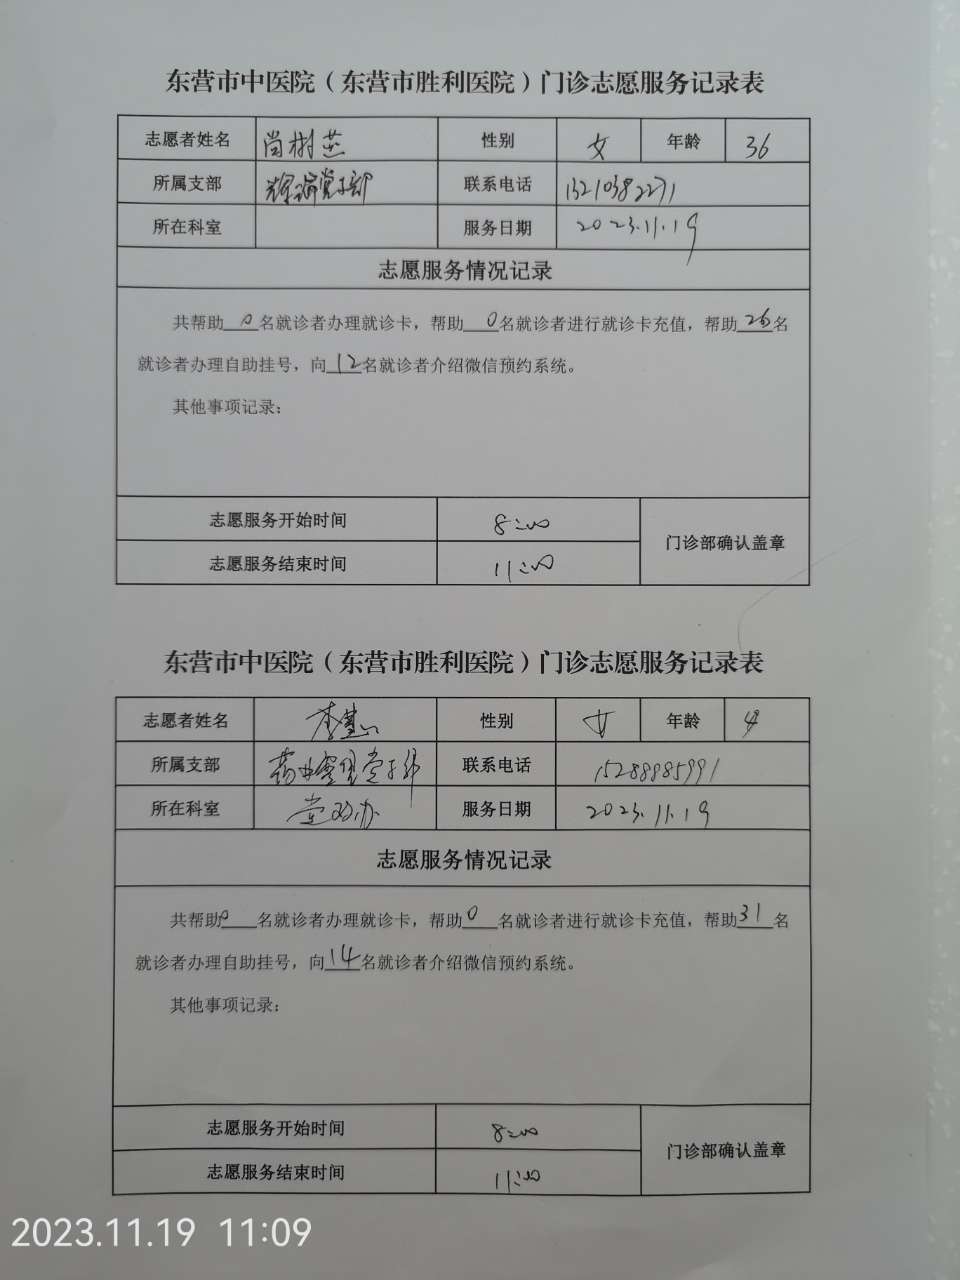 东营市中医院（东营市胜利医院）门诊志愿服务记录表
志愿者姓名 尚树燕 性别 女 年龄 36
所属支部 党支部 联系电话 13210382271
所在科室 服务日期 2023.11.19
志愿服务情况记录
共帮助0名就诊者办理就诊卡，帮助0名就诊者进行就诊卡充值，帮助26名
就诊者办理自助挂号，向12名就诊者介绍微信预约系统。
其他事项记录：
志愿服务开始时间 8:00
门诊部确认盖章
志愿服务结束时间 11:00
东营市中医院（东营市胜利医院）门诊志愿服务记录表
志愿者姓名 李慧心 性别 女 年龄
所属支部 党支部 联系电话 15288885991
所在科室 党政办 服务日期 2023.11.19
志愿服务情况记录
共帮助0名就诊者办理就诊卡，帮助0名就诊者进行就诊卡充值，帮助31名
就诊者办理自助挂号，向14名就诊者介绍微信预约系统。
其他事项记录：
志愿服务开始时间 8:00
门诊部确认盖章
志愿服务结束时间 11:00
2023.11.19 11:09